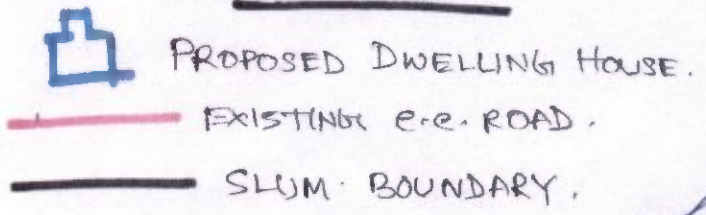 PROPOSED DWELLING HOUSE.
EXISTING C.C. ROAD.
SLUM BOUNDARY.